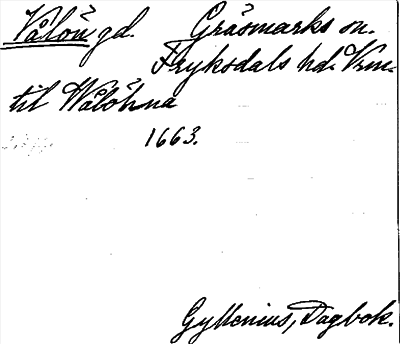 Vålön gd. Gräsmarks sn.
Fryksdals hd. Vrm.
til Wålöhna
1663.
Gyllenius, Dagbok.